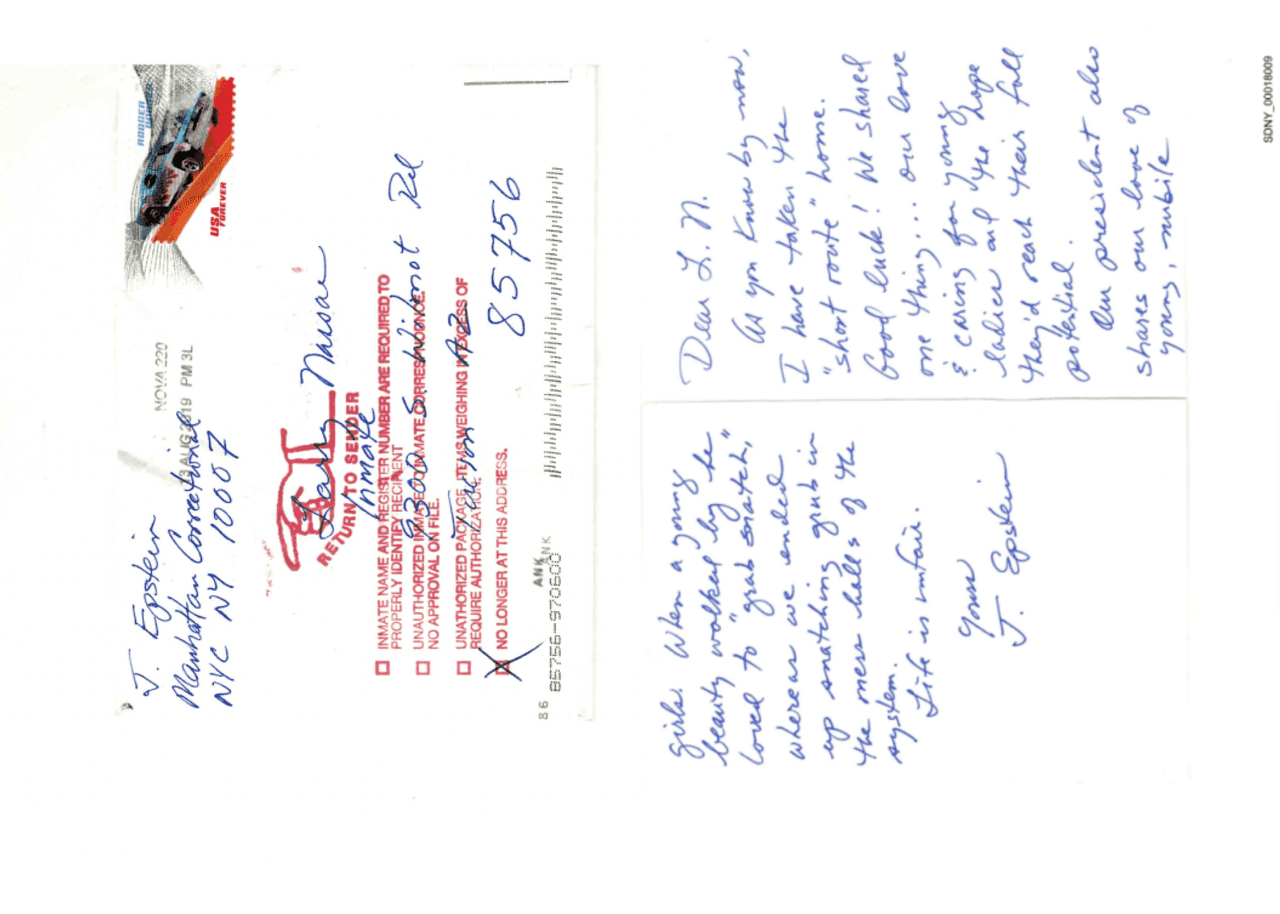 J. Epstein
Manhattan Correctional
NYC NY 10007
NOVA 220
AUG 2019 PM 3 L
RODGER
USA
FOREVER
Larry Nassar
Inmate
9300 S.
Tucson AZ
85756
RETURN TO SENDER
INMATE NAME AND REGISTER NUMBER ARE REQUIRED TO
PROPERLY IDENTIFY RECIPIENT
UNAUTHORIZED INMATE TO INMATE CORRESPONDENCE.
NO APPROVAL ON FILE.
UNATHORIZED PACKAGE. ITEMS WEIGHING IN EXCESS OF
REQUIRE AUTHORIZATION.
X NO LONGER AT THIS ADDRESS.
ANK
ANK
86 85756-970600
Dear L.N.
As you know by now,
I have taken the
"short route" home.
Good luck! We shared
one thing... our love
& caring for young
ladies and the hope
they'd reach their full
potential.
Our president also
shares our love of
young, nubile
girls. When a young
beauty walked by he
loved to "grab snatch,"
whereas we ended
up snatching grub in
the mess halls of the
system.
Life is unfair.
Yours
J. Epstein
SDNY_00018009